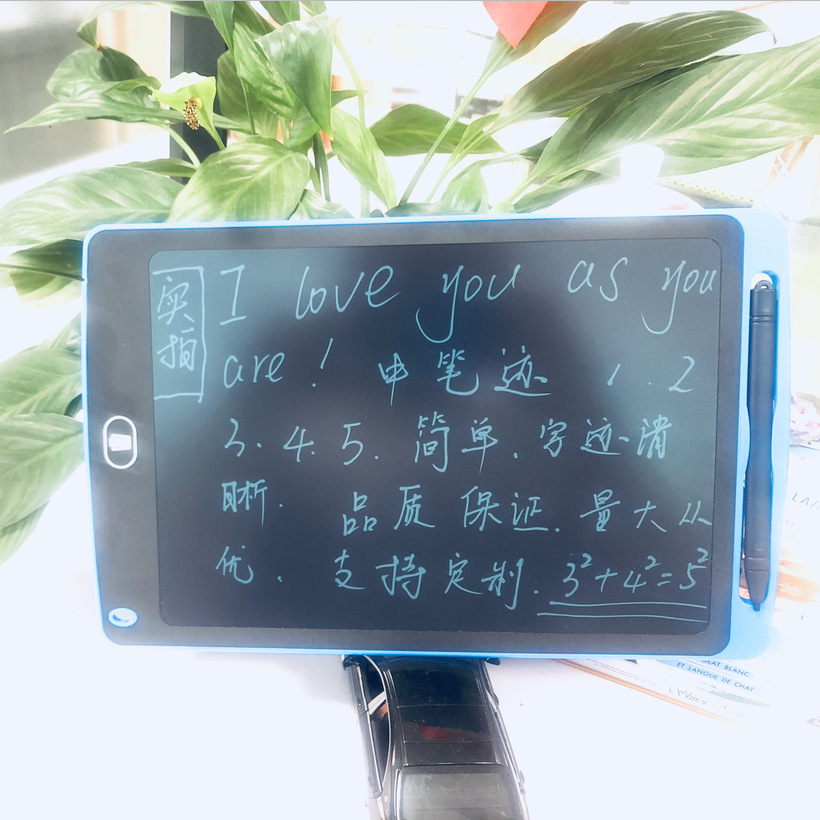 实拍
I love you as you
are! 中笔迹 1.2
3.4.5.简单.字迹清
晰. 品质保证.量大从
优. 支持定制.3²+4²=5²
BLANC
ET LANGUE DE CHAT